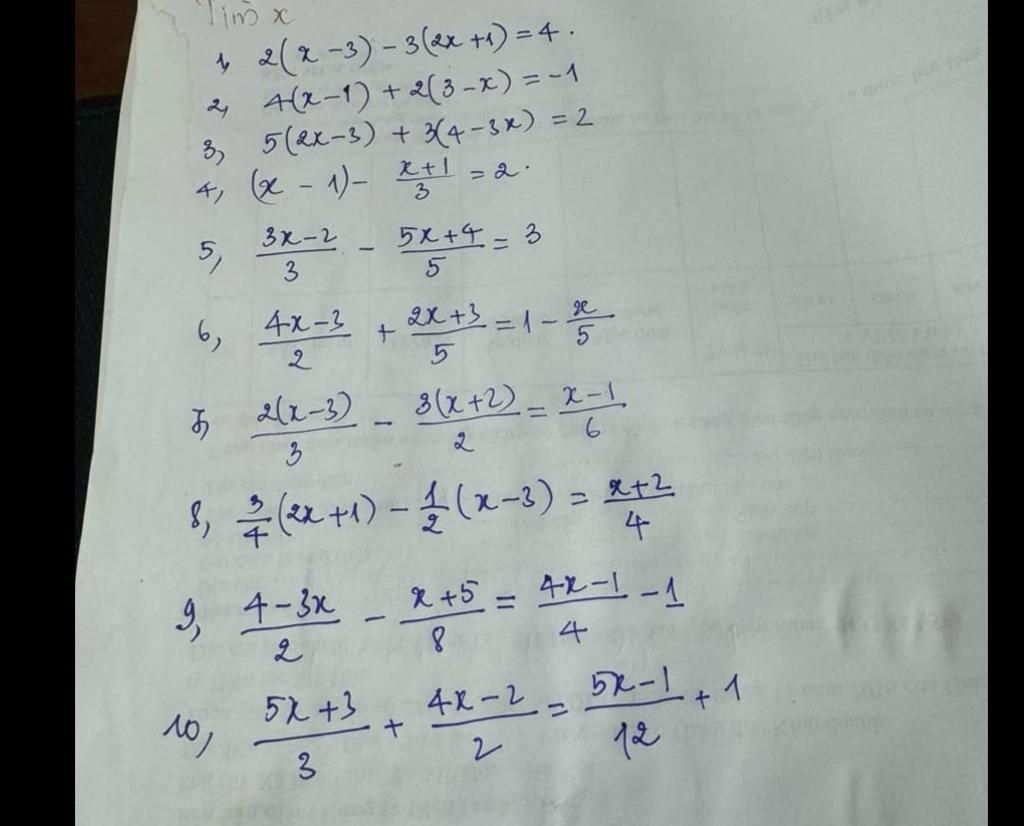 Tìm x
1, 2(x-3) - 3(2x+1) = 4.
2, 4(x-1) + 2(3-x) = -1
3, 5(2x-3) + 3(4-3x) = 2
4, (x-1) - \frac{x+1}{3} = 2.
5, \frac{3x-2}{3} - \frac{5x+4}{5} = 3
6, \frac{4x-3}{2} + \frac{2x+3}{5} = 1 - \frac{x}{5}
7, \frac{2(x-3)}{3} - \frac{3(x+2)}{2} = \frac{x-1}{6}
8, \frac{3}{4}(2x+1) - \frac{1}{2}(x-3) = \frac{x+2}{4}
9, \frac{4-3x}{2} - \frac{x+5}{8} = \frac{4x-1}{4} - 1
10, \frac{5x+3}{3} + \frac{4x-2}{2} = \frac{5x-1}{12} + 1